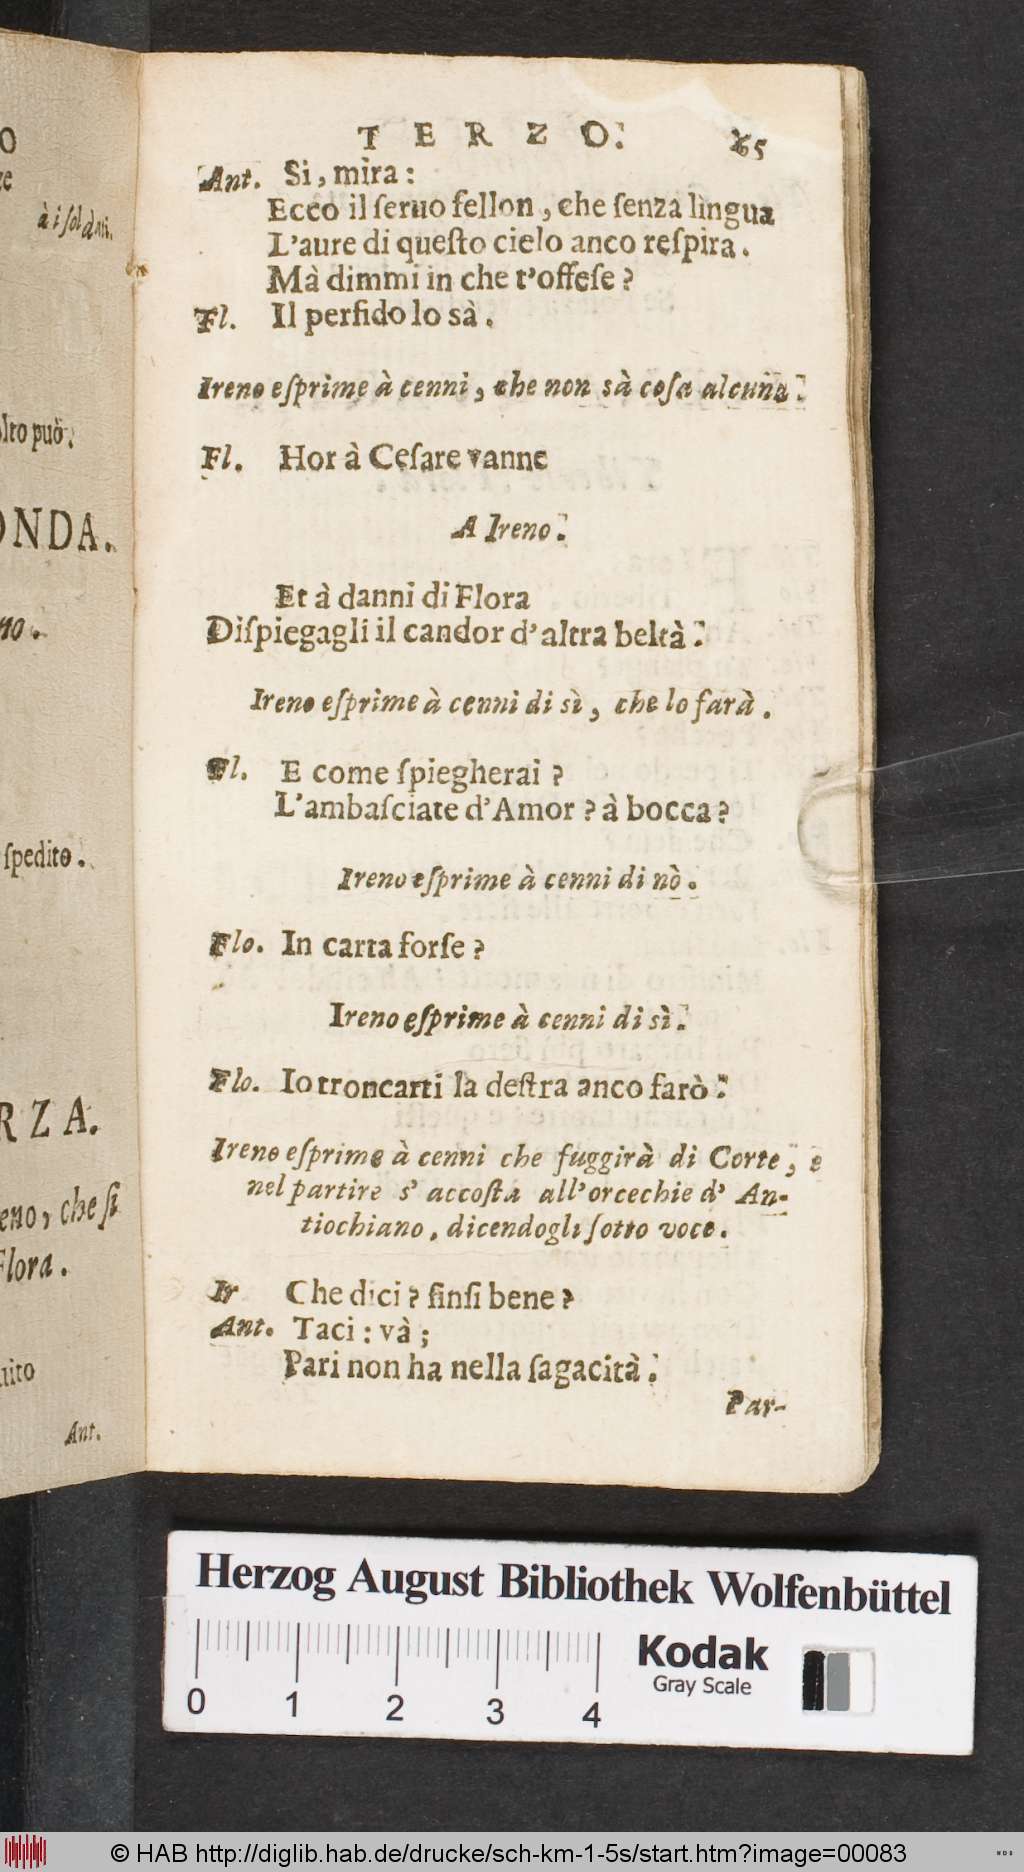 O
à i ſoldati.
olto può.
ONDA.
no.
ſpedito.
RZA.
eno, che ſi
Flora.
uito
Ant.
TERZO. 65
Ant. Si, mira:
Ecco il ſeruo fellon, che ſenza lingua
L'aure di queſto cielo anco reſpira.
Mà dimmi in che t'offeſe?
Fl. Il perfido lo sà.
Ireno eſprime à cenni, che non sà coſa alcuna.
Fl. Hor à Ceſare vanne
A Ireno.
Et à danni di Flora
Diſpiegagli il candor d'altra beltà.
Ireno eſprime à cenni di sì, che lo farà.
Fl. E come ſpiegherai?
L'ambaſciate d'Amor? à bocca?
Ireno eſprime à cenni di nò.
Flo. In carta forſe?
Ireno eſprime à cenni di sì.
Flo. Io troncarti la deſtra anco farò.
Ireno eſprime à cenni che fuggirà di Corte, e
nel partire s' accoſta all' orcechie d' An-
tiochiano, dicendogli ſotto voce.
Ir Che dici? finſi bene?
Ant. Taci: và;
Pari non ha nella ſagacità.
Par-
Herzog August Bibliothek Wolfenbüttel
0 1 2 3 4
Kodak
Gray Scale
© HAB http://diglib.hab.de/drucke/sch-km-1-5s/start.htm?image=00083